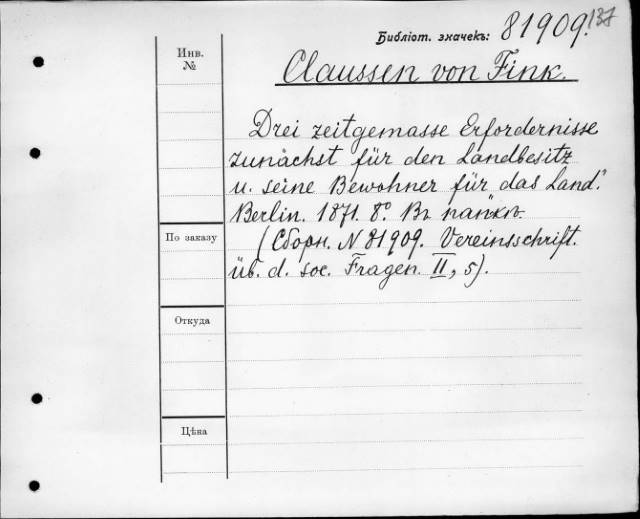 Библіот. значекъ: 81909.
137
Инв.
№
Claussen von Fink.
Drei zeitgemasse Erfordernisse
zunächst für den Landbesitz
u. seine Bewohner für das Land.
Berlin. 1871. 8º. Въ папкѣ.
(Сборн. N 81909. Vereinsschrift.
üb. d. soc. Fragen. II, 5).
По заказу
Откуда
Цѣна